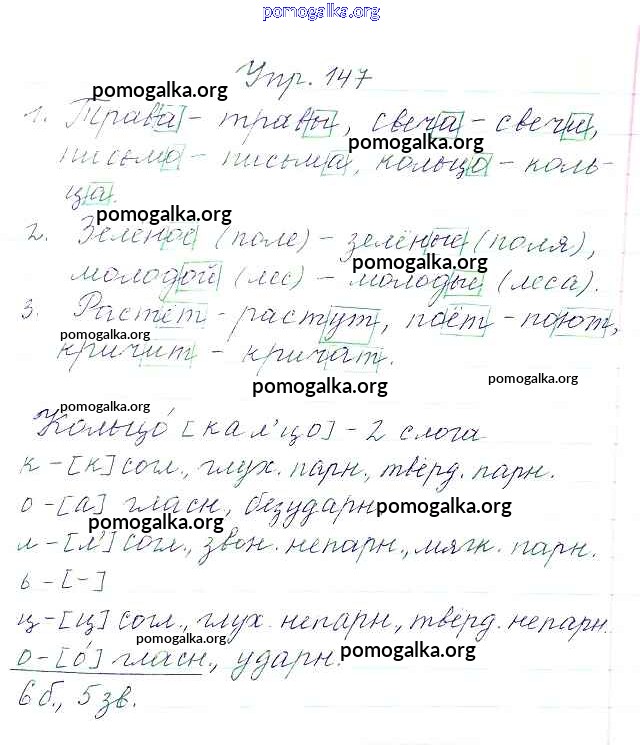 pomogalka.org
Упр. 147
pomogalka.org
1. Трава - травы, свеча - свечи,
pomogalka.org
письмо - письма, кольцо - коль-
ца.
pomogalka.org
2. Зеленое (поле) - зелёные (поля),
pomogalka.org
молодой (лес) - молодые (леса).
3. Растёт - растут, поёт - поют,
pomogalka.org
кричит - кричат.
pomogalka.org
pomogalka.org
pomogalka.org
Кольцо́ [кал'цо] - 2 слога
к - [к] согл., глух. парн., твёрд. парн.
о - [а] гласн., безударн.
pomogalka.org
pomogalka.org
л - [л'] согл., звон. непарн., мягк. парн.
ь - [-]
ц - [ц] согл., глух. непарн., твёрд. непарн.
pomogalka.org
о - [о́] гласн., ударн.
pomogalka.org
6 б., 5 зв.